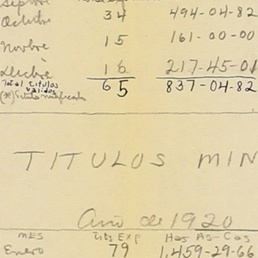 Sepbre
Octubre 34 494-04-82
Novbre 15 161-00-00
Dicbre 16 217-45-01
Total titulos validos 65 837-04-82
TITULOS MIN
Año de 1920
MES Tits Exp Has As-Cas
Enero 79 1,459-29-66